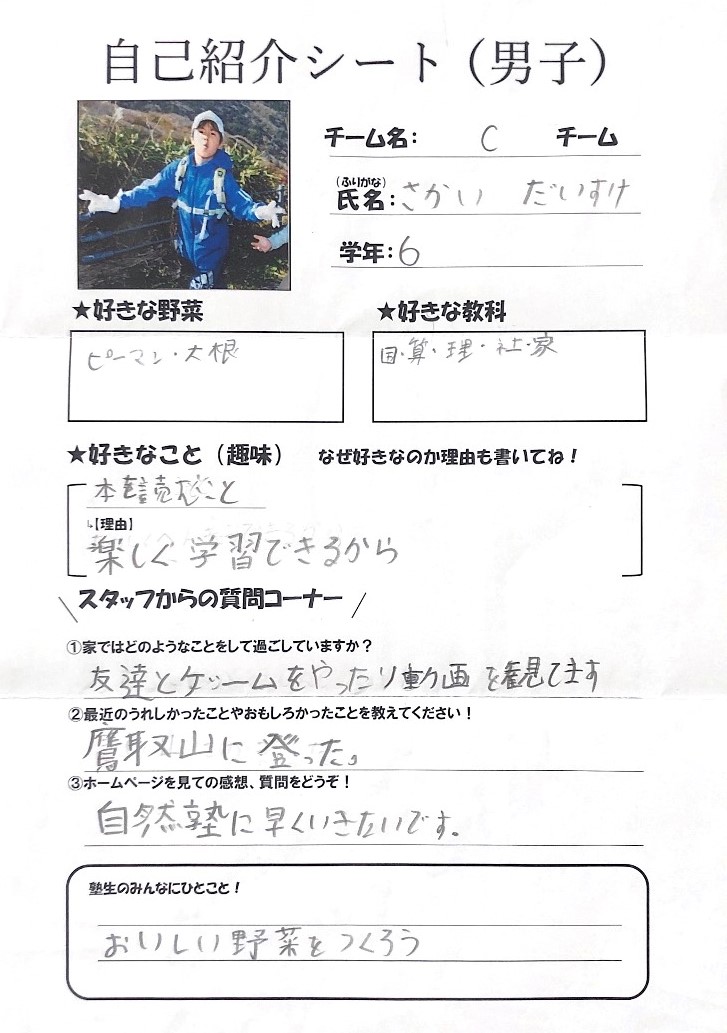 自己紹介シート（男子）
チーム名： C チーム
（ふりがな）
氏名：さかい だいすけ
学年：6
★好きな野菜
ピーマン・大根
★好きな教科
国・算・理・社・家
★好きなこと（趣味） なぜ好きなのか理由も書いてね！
本を読むこと
↳【理由】
楽しく学習できるから
スタッフからの質問コーナー
①家ではどのようなことをして過ごしていますか？
友達とゲームをやったり動画を観てます
②最近のうれしかったことやおもしろかったことを教えてください！
鷹取山に登った。
③ホームページを見ての感想、質問をどうぞ！
自然塾に早くいきたいです。
塾生のみんなにひとこと！
おいしい野菜をつくろう